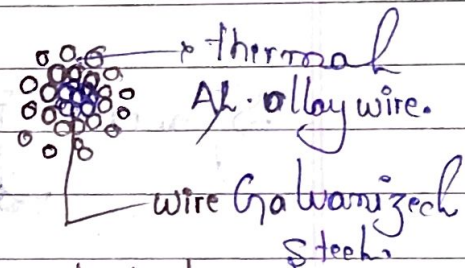 thermal
Al. alloy wire.
wire Galvanized
Steel.